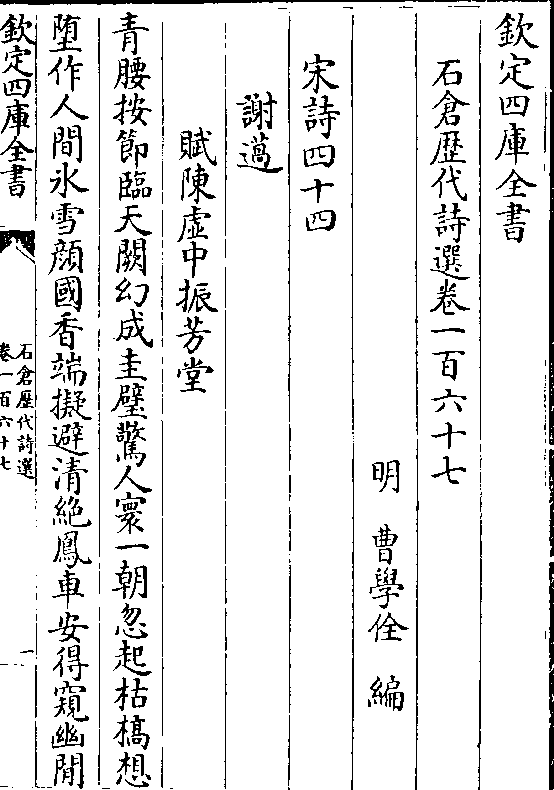 欽定四庫全書
石倉歴代詩選卷一百六十七
明 曹學佺 編
宋詩四十四
謝薖
賦陳虚中振芳堂
青腰按節臨天闕幻成圭璧驚人寰一朝忽起枯槁想
墮作人間氷雪顔國香端擬避清絶鳳車安得窺幽閒
欽定四庫全書
石倉歷代詩選
卷一百六十七
一